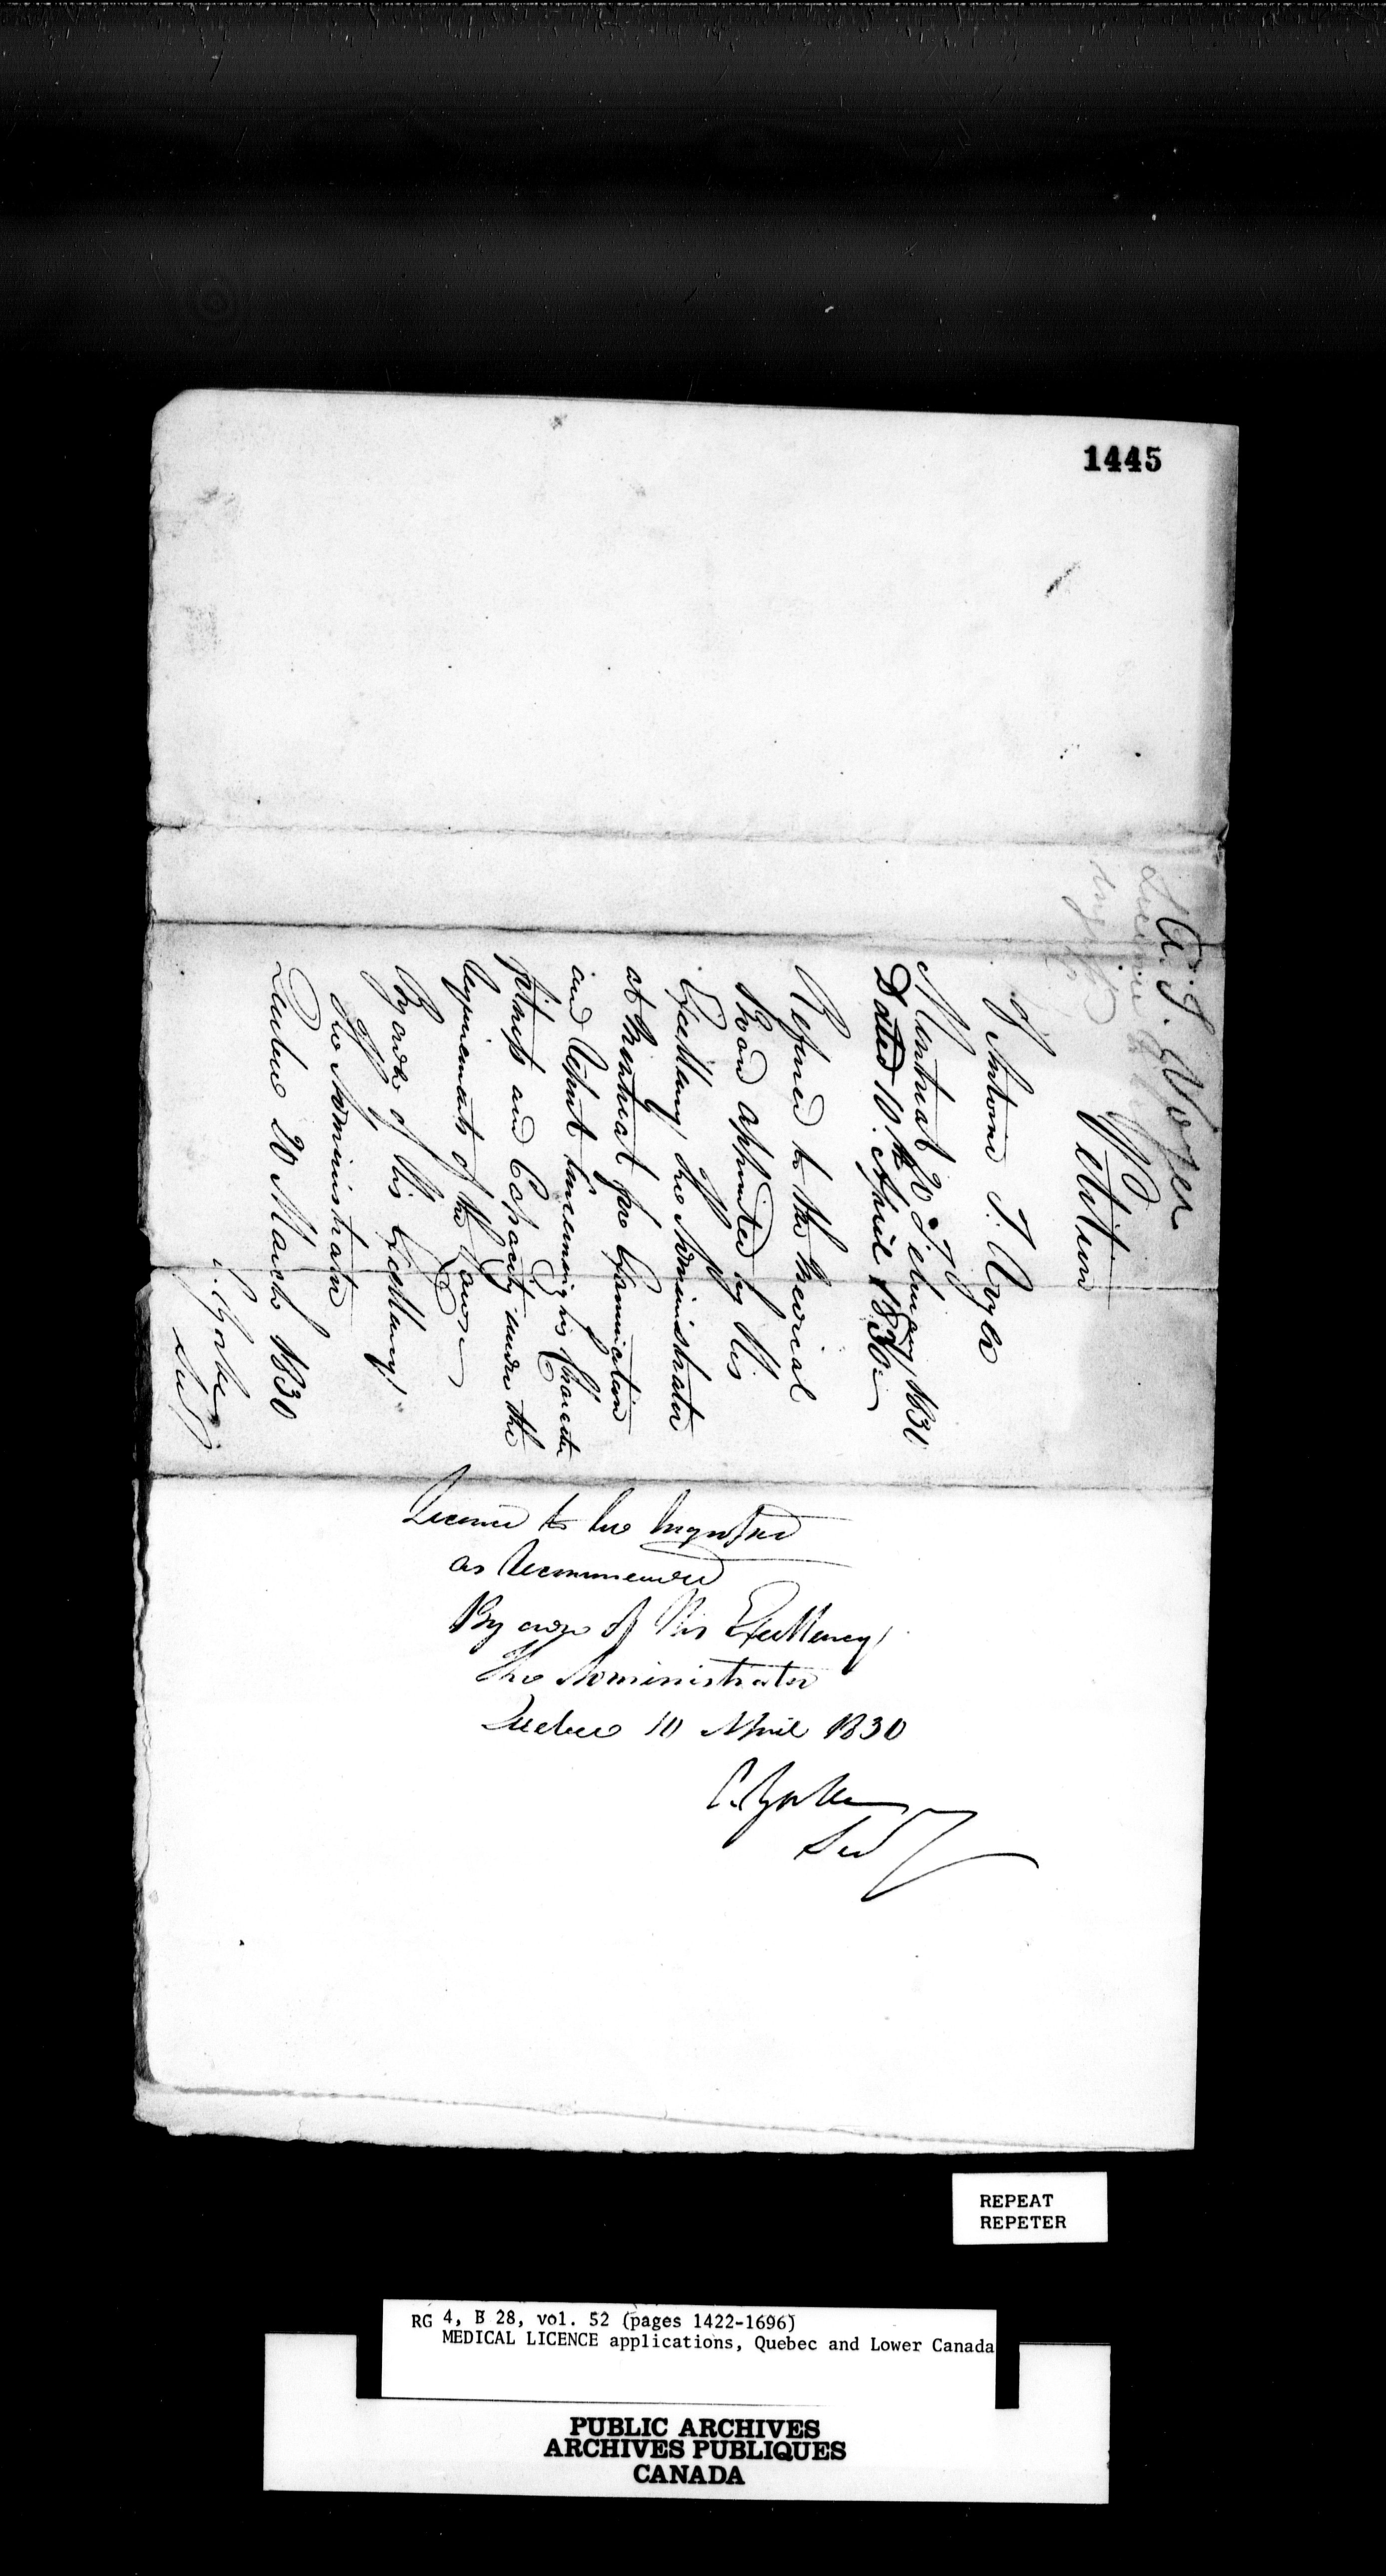 1445
A. T. Voyer
Petition
of Antoine T. Voyer
Montreal 20 February 1830
Dated 10th April 1830
Referred to the Medical
Board appointed by His
Excellency the Administrator
at Montreal for Examination
and Report concerning his Character
fitness and Capacity under the
requirements of the Law
By order of His Excellency
The Administrator
Quebec 20 March 1830
C. Yorke
Secy
Licence to be Engrossed
as Recommended
By order of His Excellency
The Administrator
Quebec 10 April 1830
C. Yorke
Secy
REPEAT
REPETER
RG 4, B 28, vol. 52 (pages 1422-1696)
MEDICAL LICENCE applications, Quebec and Lower Canada
PUBLIC ARCHIVES
ARCHIVES PUBLIQUES
CANADA